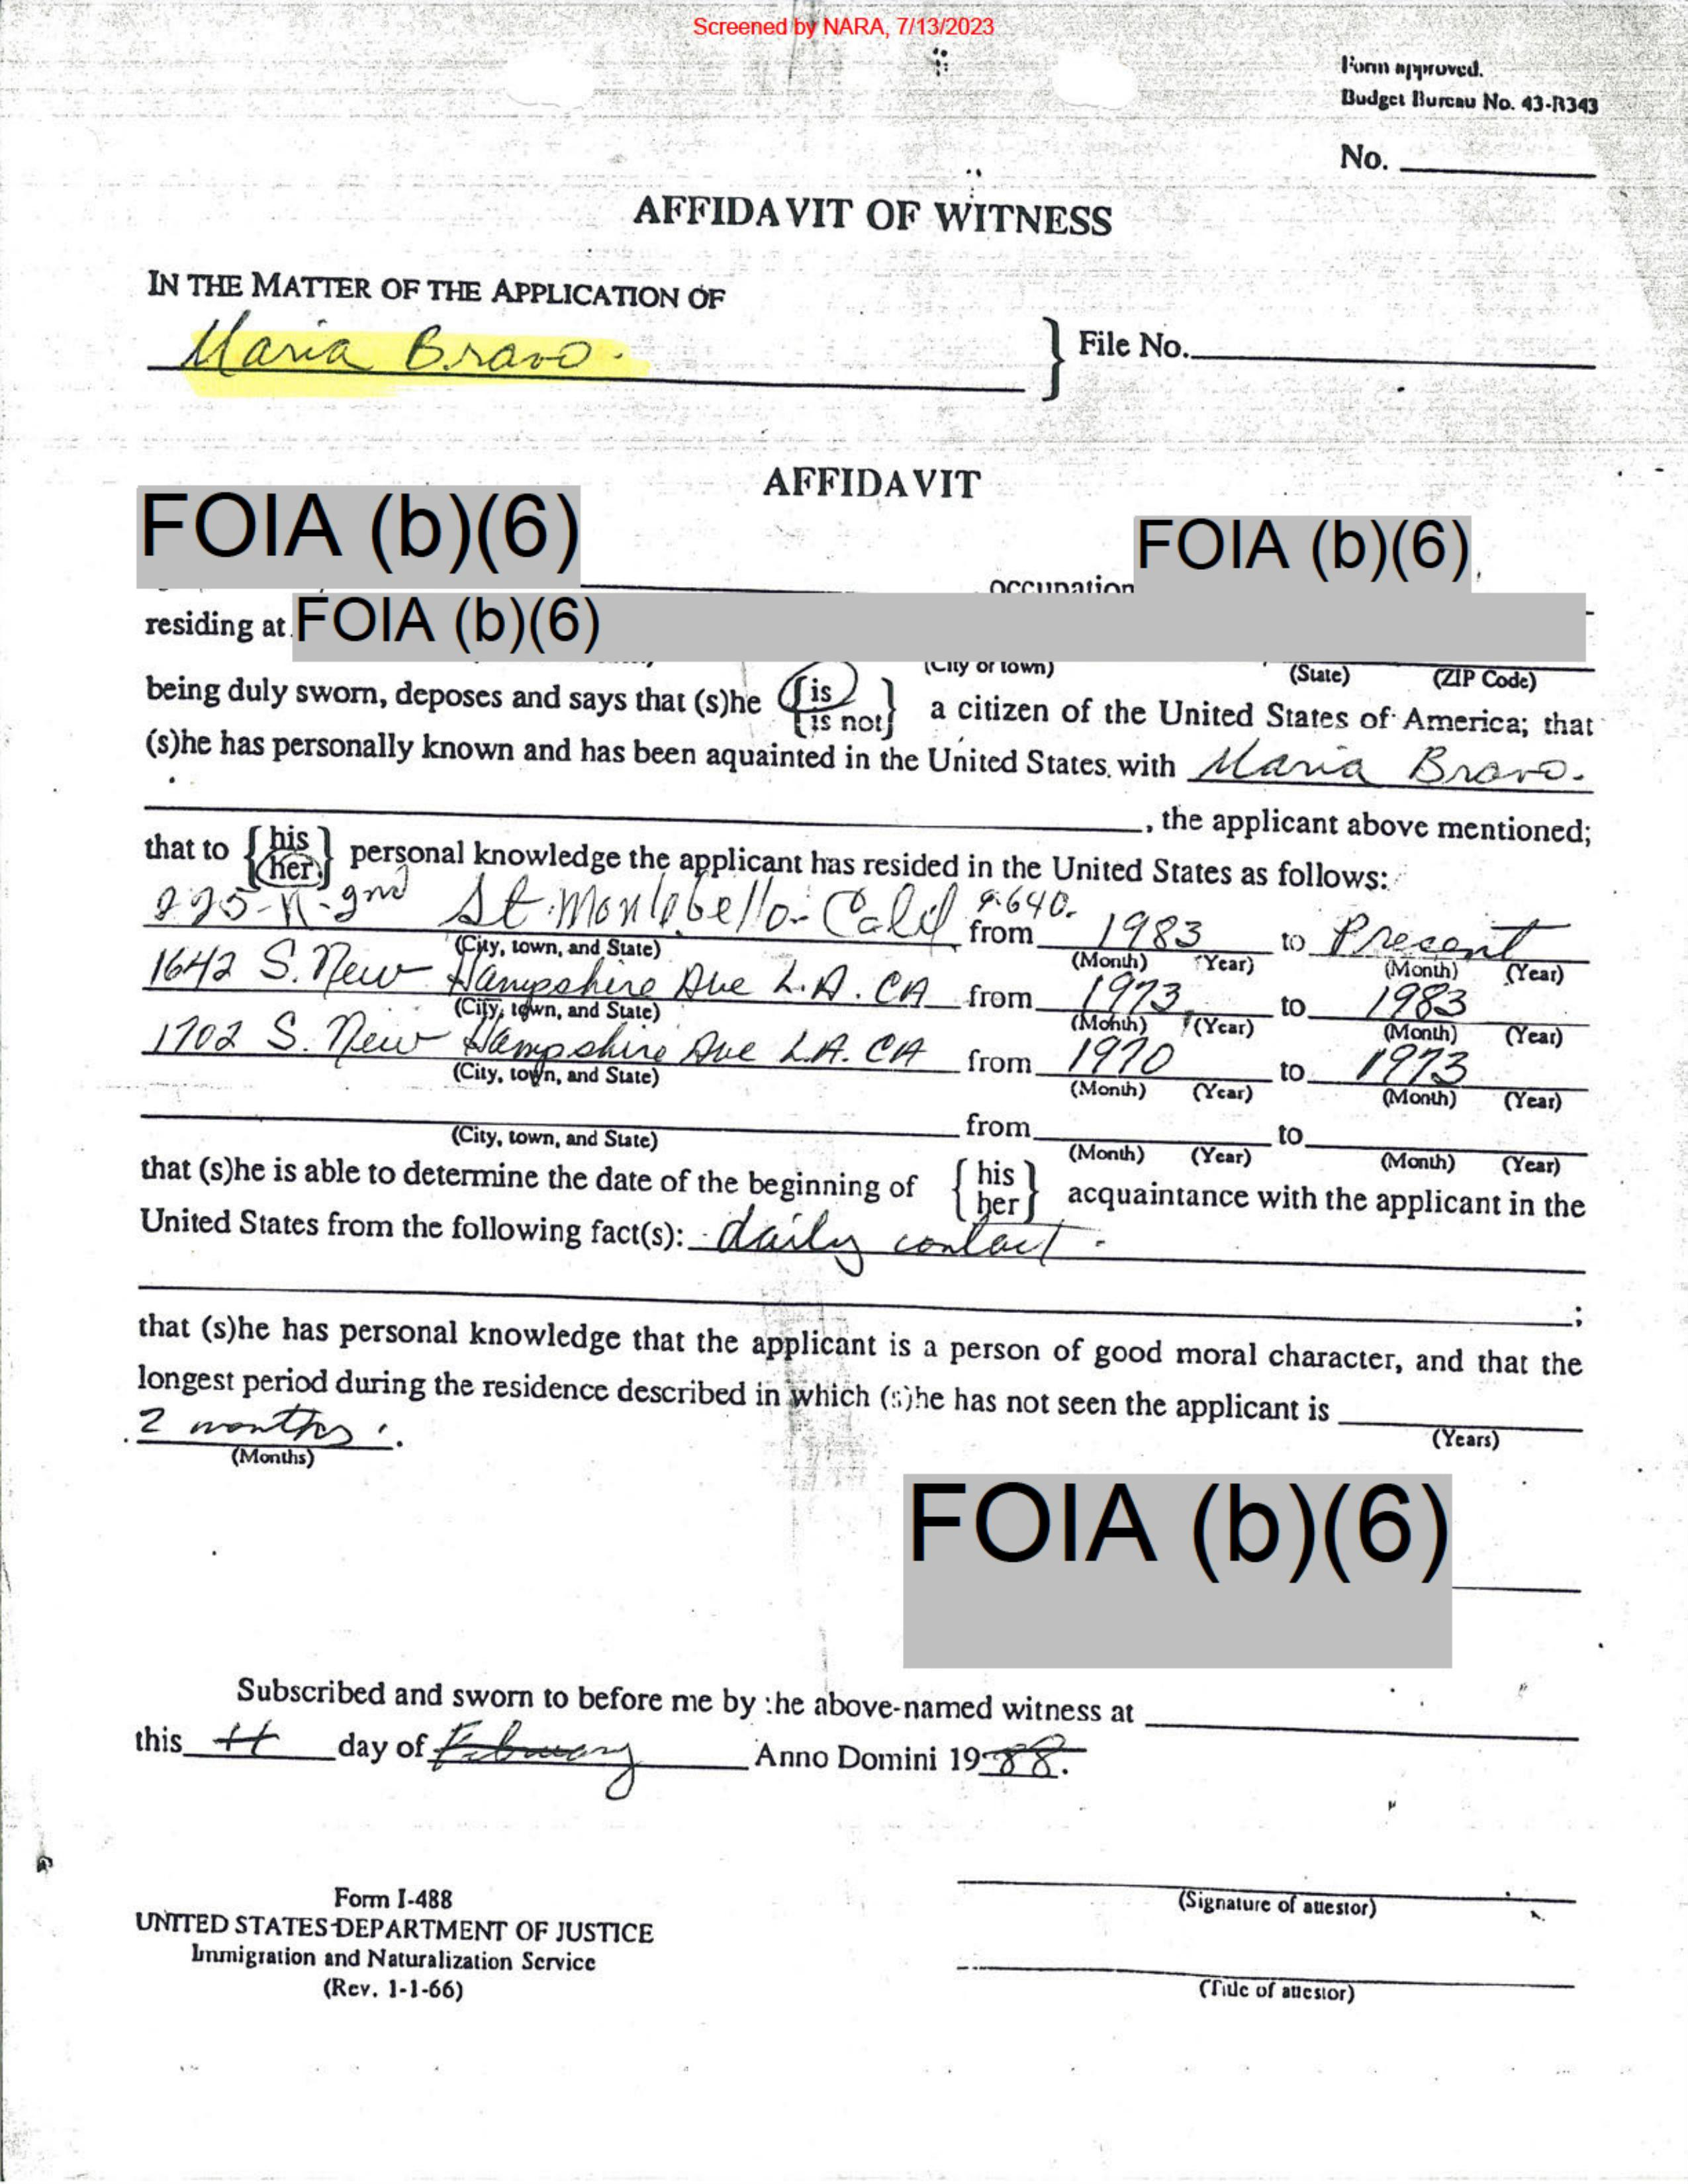 Screened by NARA, 7/13/2023
Form approved.
Budget Bureau No. 43-R343
No.
AFFIDAVIT OF WITNESS
IN THE MATTER OF THE APPLICATION OF
Maria Bravo.
} File No.
AFFIDAVIT
FOIA (b)(6)
FOIA (b)(6)
occupation
residing at FOIA (b)(6)
(City or town) (State) (ZIP Code)
being duly sworn, deposes and says that (s)he {is / is not} a citizen of the United States of America; that
(s)he has personally known and has been aquainted in the United States with Maria Bravo.
, the applicant above mentioned;
that to {his / her} personal knowledge the applicant has resided in the United States as follows:
St. Montebello Calif from 1983 to Present
(City, town, and State) (Month) (Year) (Month) (Year)
1642 S. New Hampshire Ave L.A. CA from 1973 to 1983
(City, town, and State) (Month) (Year) (Month) (Year)
1702 S. New Hampshire Ave L.A. CA from 1970 to 1973
(City, town, and State) (Month) (Year) (Month) (Year)
from to
(City, town, and State) (Month) (Year) (Month) (Year)
that (s)he is able to determine the date of the beginning of {his / her} acquaintance with the applicant in the
United States from the following fact(s): daily contact.
;
that (s)he has personal knowledge that the applicant is a person of good moral character, and that the
longest period during the residence described in which (s)he has not seen the applicant is
(Years)
2 months.
(Months)
FOIA (b)(6)
Subscribed and sworn to before me by the above-named witness at
this day of February Anno Domini 1988.
Form I-488
UNITED STATES DEPARTMENT OF JUSTICE
Immigration and Naturalization Service
(Rev. 1-1-66)
(Signature of attestor)
(Title of attestor)